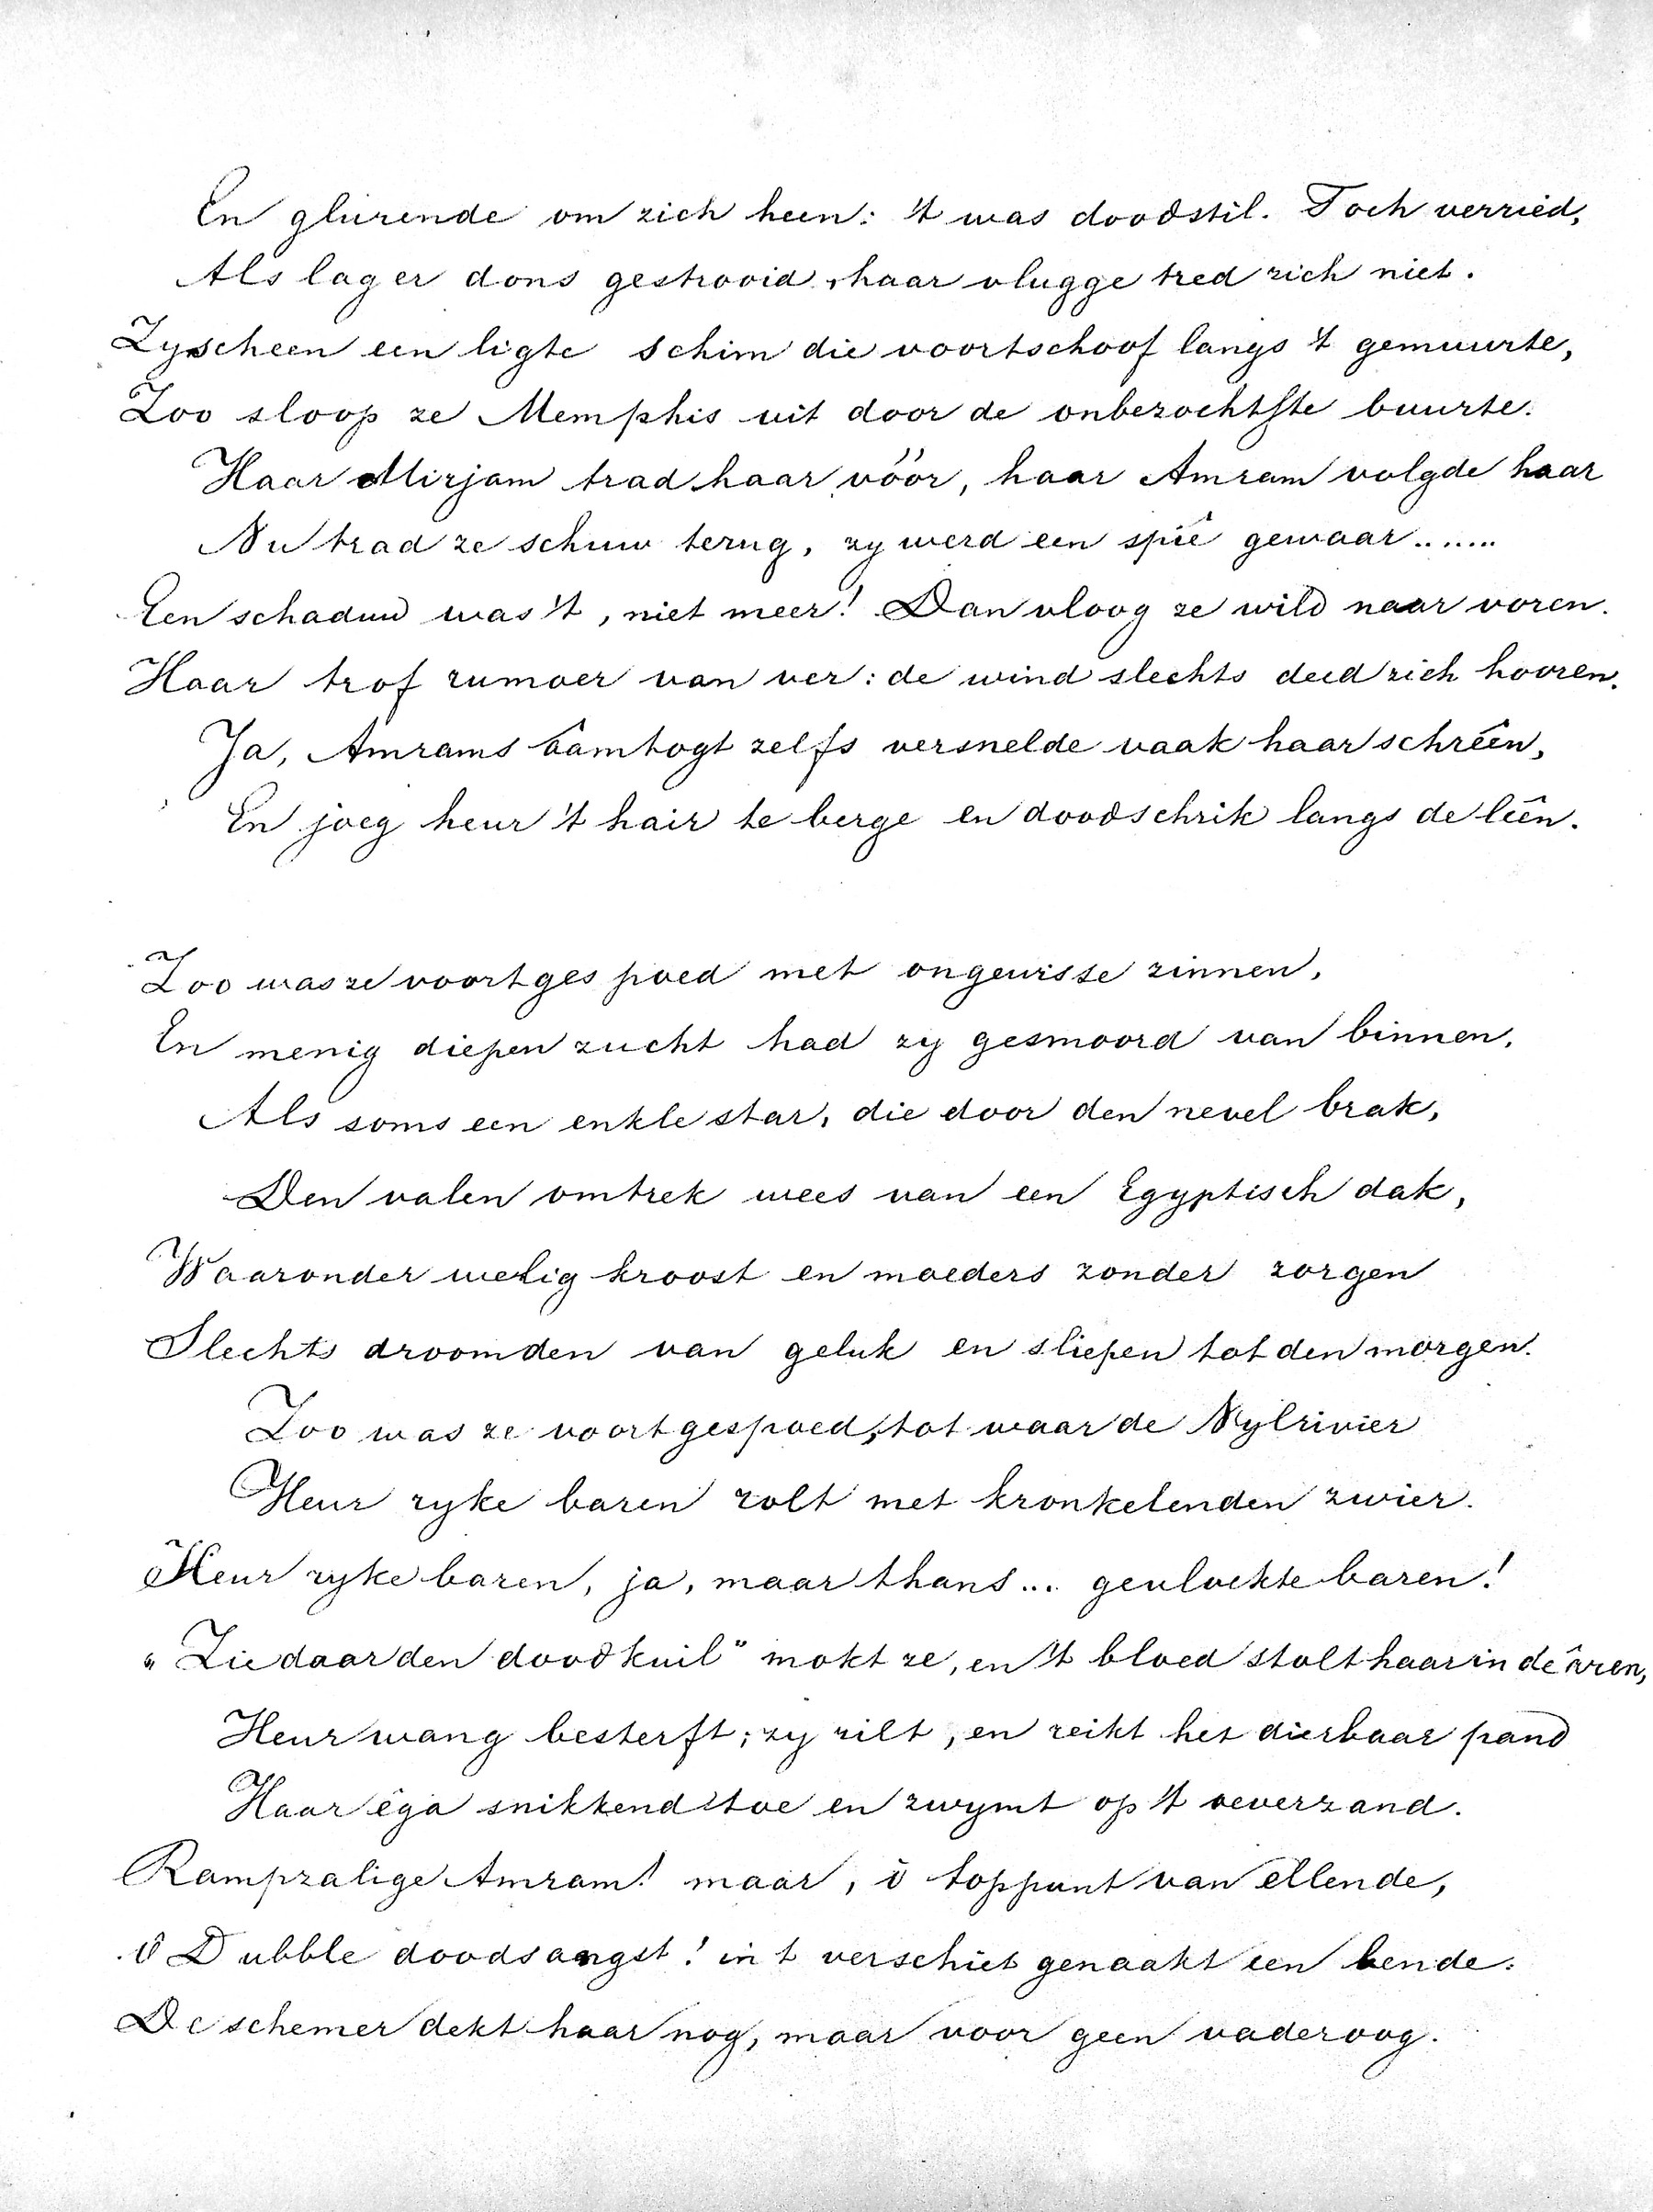 En glurende om zich heen: 't was doodstil. Toch verried,
Als lag er dons gestrooid, haar vlugge tred zich niet.
Zy scheen een ligte schim die voortschoof langs 't gemuurte,
Zoo sloop ze Memphis uit door de onbezochtste buurte.
Haar Mirjam trad haar vóór, haar Amram volgde haar
Nu trad ze schuw terug, zy werd een spië gewaar.......
Een schaduw was 't, niet meer! Dan vloog ze wild naar voren.
Haar trof rumoer van ver: de wind slechts deed zich hooren.
Ja, Amrams âamtogt zelfs versnelde vaak haar schrêen,
En joeg heur 't hair te berge en doodschrik langs de lêen.
Zoo was ze voortgespoed met ongewisse zinnen,
En menig diepen zucht had zy gesmoord van binnen,
Als soms een enkle star, die door den nevel brak,
Den valen omtrek wees van een Egyptisch dak,
Waaronder welig kroost en moeders zonder zorgen
Slechts droomden van geluk en sliepen tot den morgen.
Zoo was ze voortgespoed, tot waar de Nylrivier
Heur ryke baren rolt met kronkelenden zwier.
Heur ryke baren, ja, maar thans... gevloekte baren!
"Zie daar den doodkuil" mokt ze, en 't bloed stolt haar in de âren,
Heur wang besterft; zy rilt, en reikt het dierbaar pand
Haar êga snikkend toe en zwymt op 't oeverzand.
Rampzalige Amram! maar, ô toppunt van ellende,
ô Dubble doodsangst! in t verschiet genaakt een bende.
De schemer dekt haar nog, maar voor geen vaderoog.